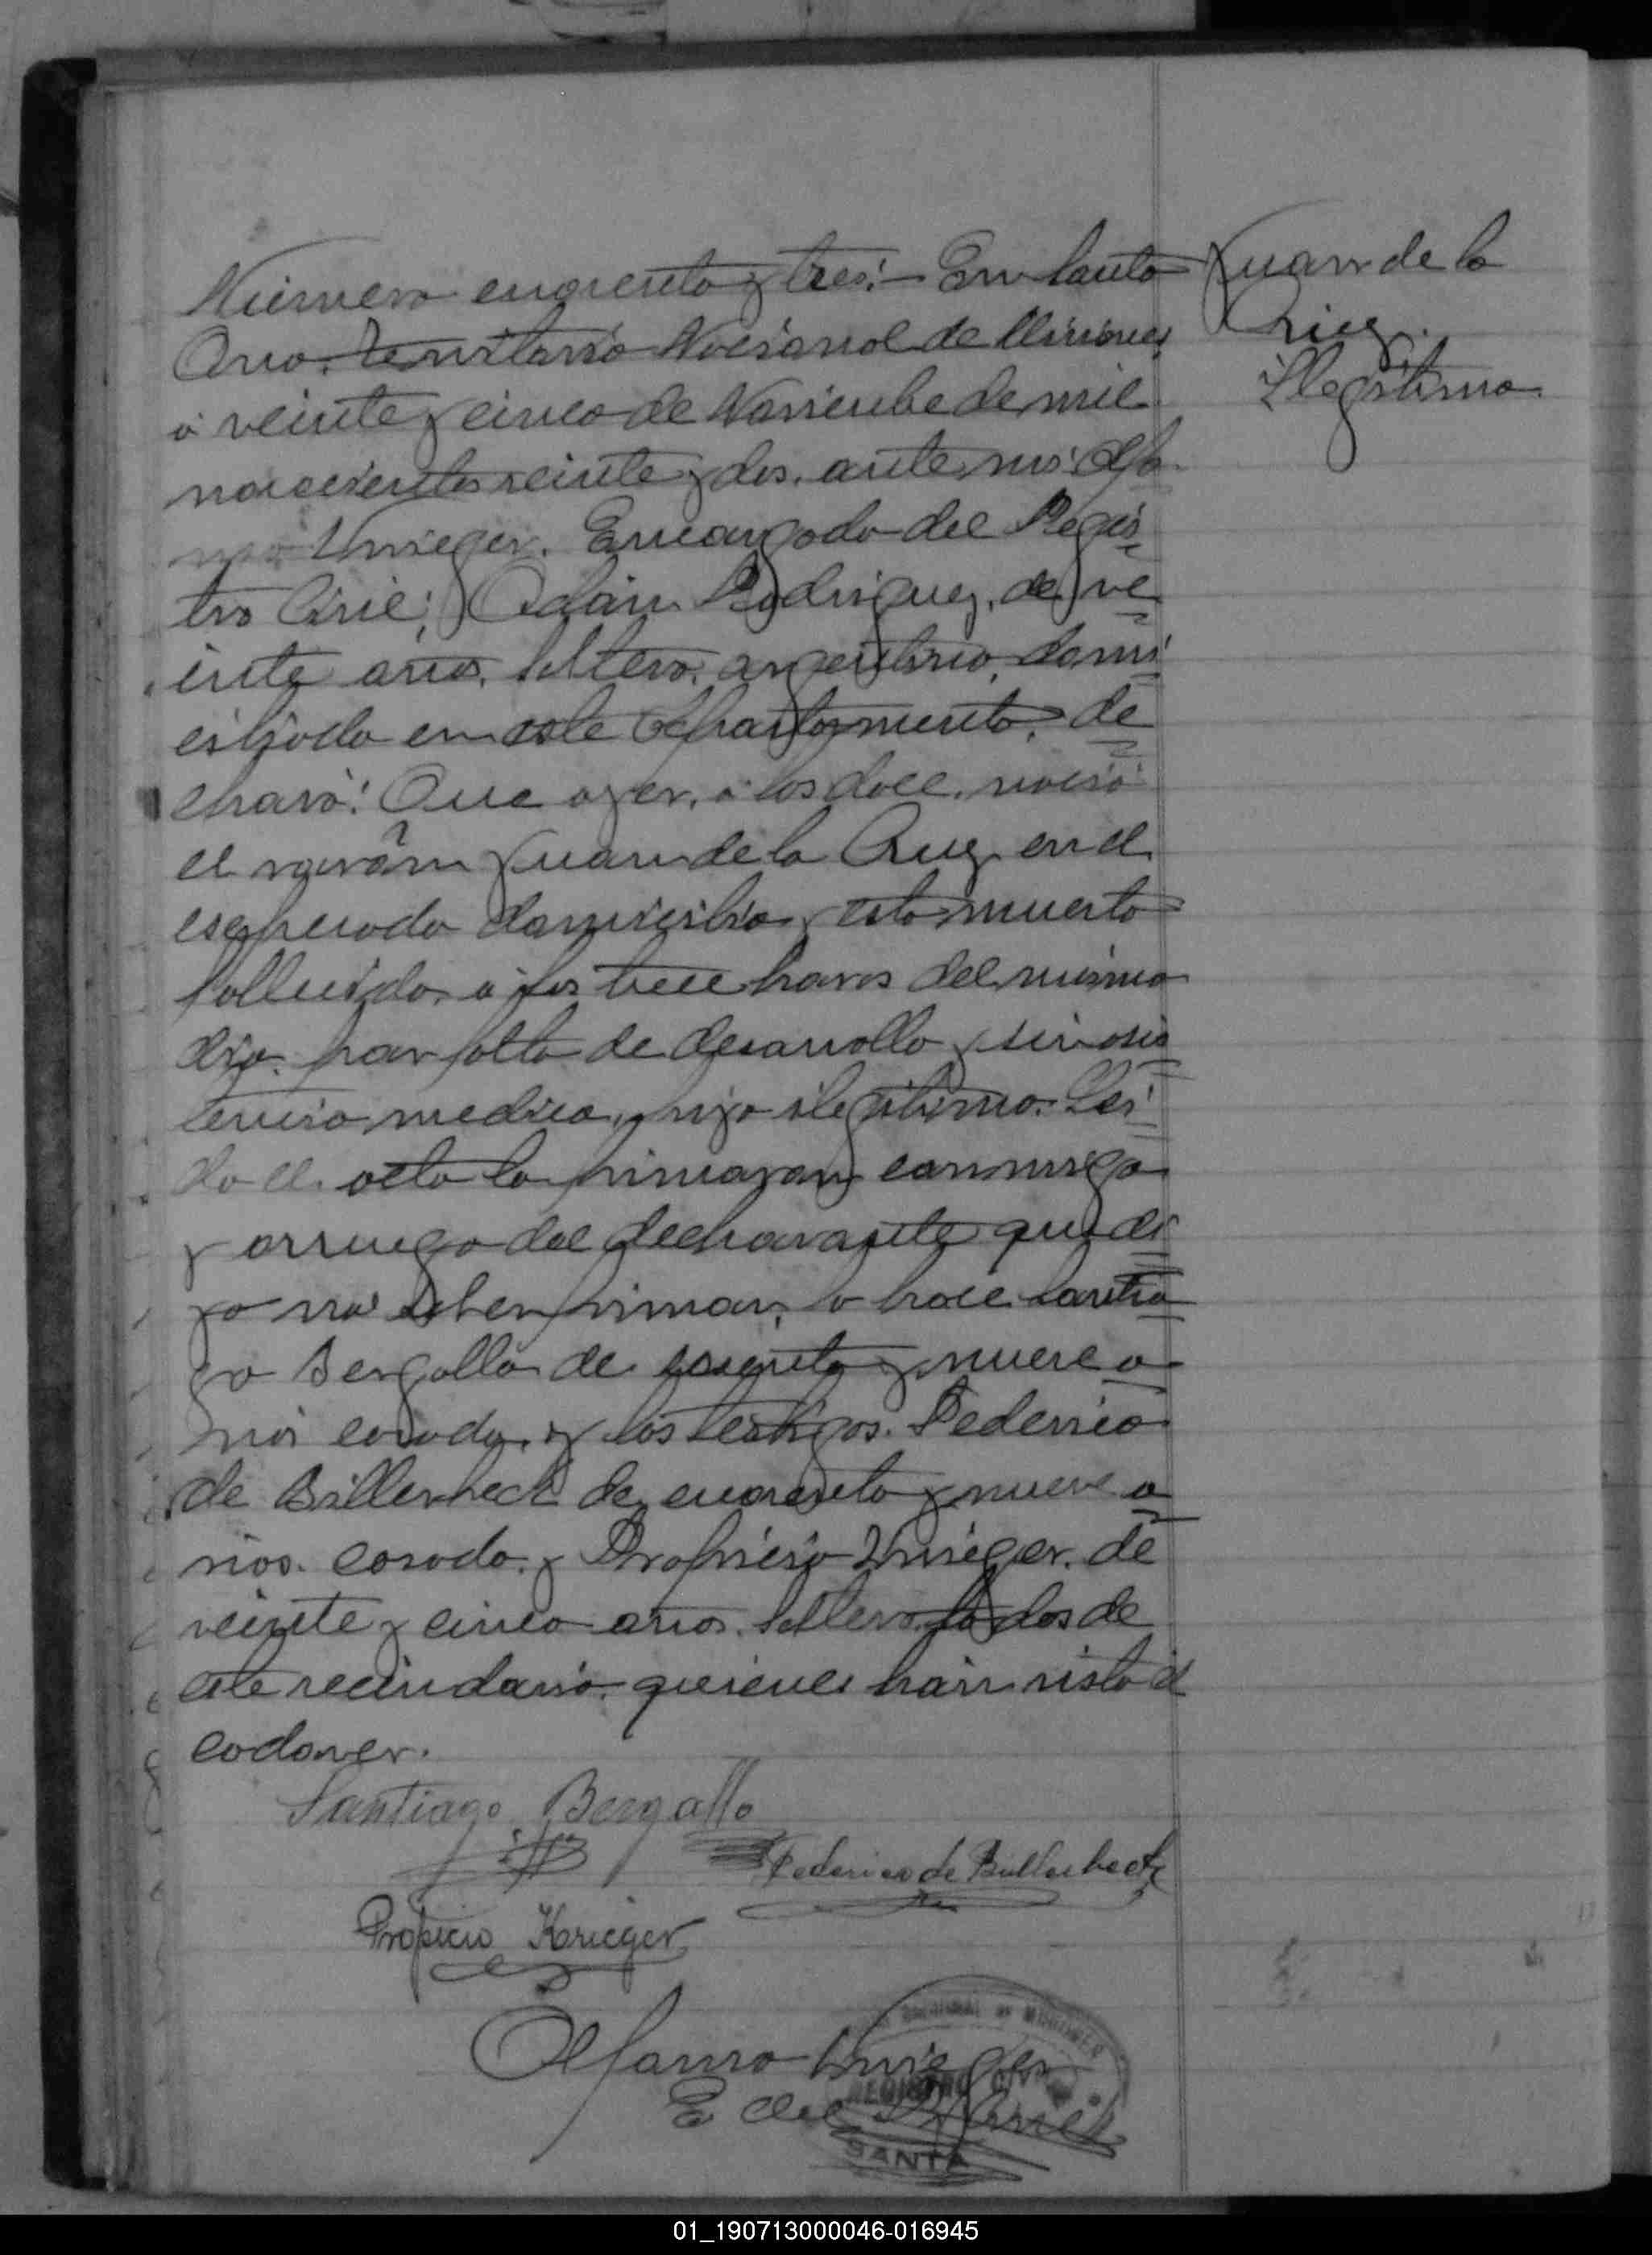 Número cuarenta y tres: En Santa
Ana, Territorio Nacional de Misiones
á veinte y cinco de Noviembe de mil
novecientos veinte y dos, ante mi Alfo
nso Krieger, Encargado del Regis
tro Civil; Adán Rodriguez, de ve
inte años, soltero, argentino, domi
ciliado en este Departamento, de
claró: Que ayer, á las doce, nació
el varón Juan de la Cruz, en el
espresado domicilio y esta muerto
fallecido, á las trece horas del mismo
dia, por falta de desarrollo y sin asis
tencia medica, hijo ilegítimo. Lei
da el acta la firmaron conmigo
y a ruego del declarante que di
jo no saber firmar, lo hace Santia
go Bergallo de sesenta y nueve a
ños casado, y los testigos. Federico
de Billerbeck de cuarenta y nueve a
ños. casado. y Propicio Krieger, de
veinte y cinco años. soltero todos de
este vecindario. quienes han visto el
cadaver.
Juan de la
Cruz.
Ilegitimo.
Santiago Bergallo
Federico de Billerbeck
Propicio Krieger
Alfonso Krieger
E del R Civil
NACIONAL DE MISIONES
REGISTRO CIVIL
SANTA
01_190713000046-016945